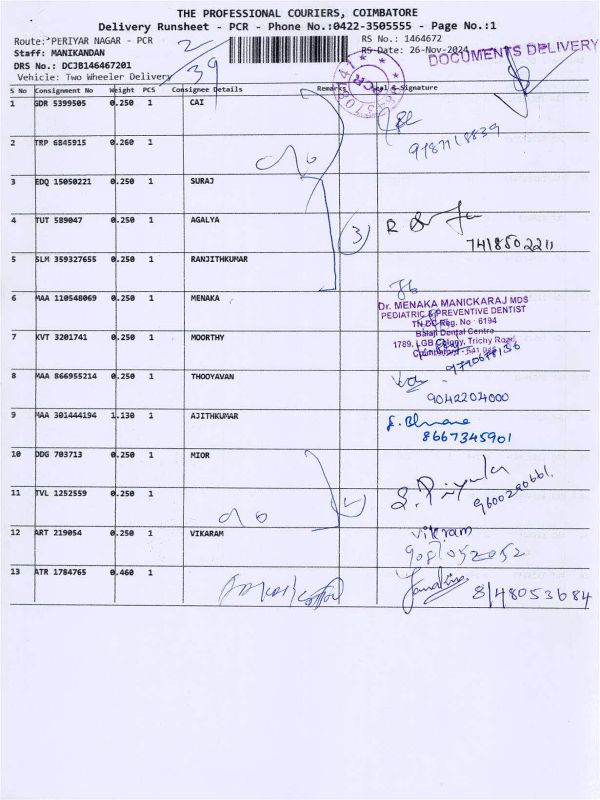 THE PROFESSIONAL COURIERS, COIMBATORE
Delivery Runsheet - PCR - Phone No.:0422-3505555 - Page No.:1
Route: PERIYAR NAGAR - PCR
RS No.: 1464672
Staff: MANIKANDAN
RS Date: 26-Nov-2024
DOCUMENTS DELIVERY
DRS No.: DCJB146467201
Vehicle: Two Wheeler Delivery
2/39
PCR
S No Consignment No Weight PCS Consignee Details Remarks & Signature
1 GDR 5399505 0.250 1 CAI
2 TRP 6845915 0.260 1
3 EDQ 15050221 0.250 1 SURAJ
4 TUT 589047 0.250 1 AGALYA
3
7418502211
5 SLM 359327655 0.250 1 RANJITHKUMAR
6 MAA 110548069 0.250 1 MENAKA
Dr. MENAKA MANICKARAJ MDS
PEDIATRIC & PREVENTIVE DENTIST
TN DC Reg. No : 6194
Balaji Dental Centre
1789, LGB Colony, Trichy Road,
7 KVT 3201741 0.250 1 MOORTHY
8 MAA 866955214 0.250 1 THOOYAVAN
9042204000
9 MAA 301444194 1.130 1 AJITHKUMAR
8667345901
10 DDG 703713 0.250 1 MIOR
S. Priyanka
9600290661
11 TVL 1252559 0.250 1
12 ART 219054 0.250 1 VIKARAM
vikram
13 ATR 1784765 0.460 1
8148053684